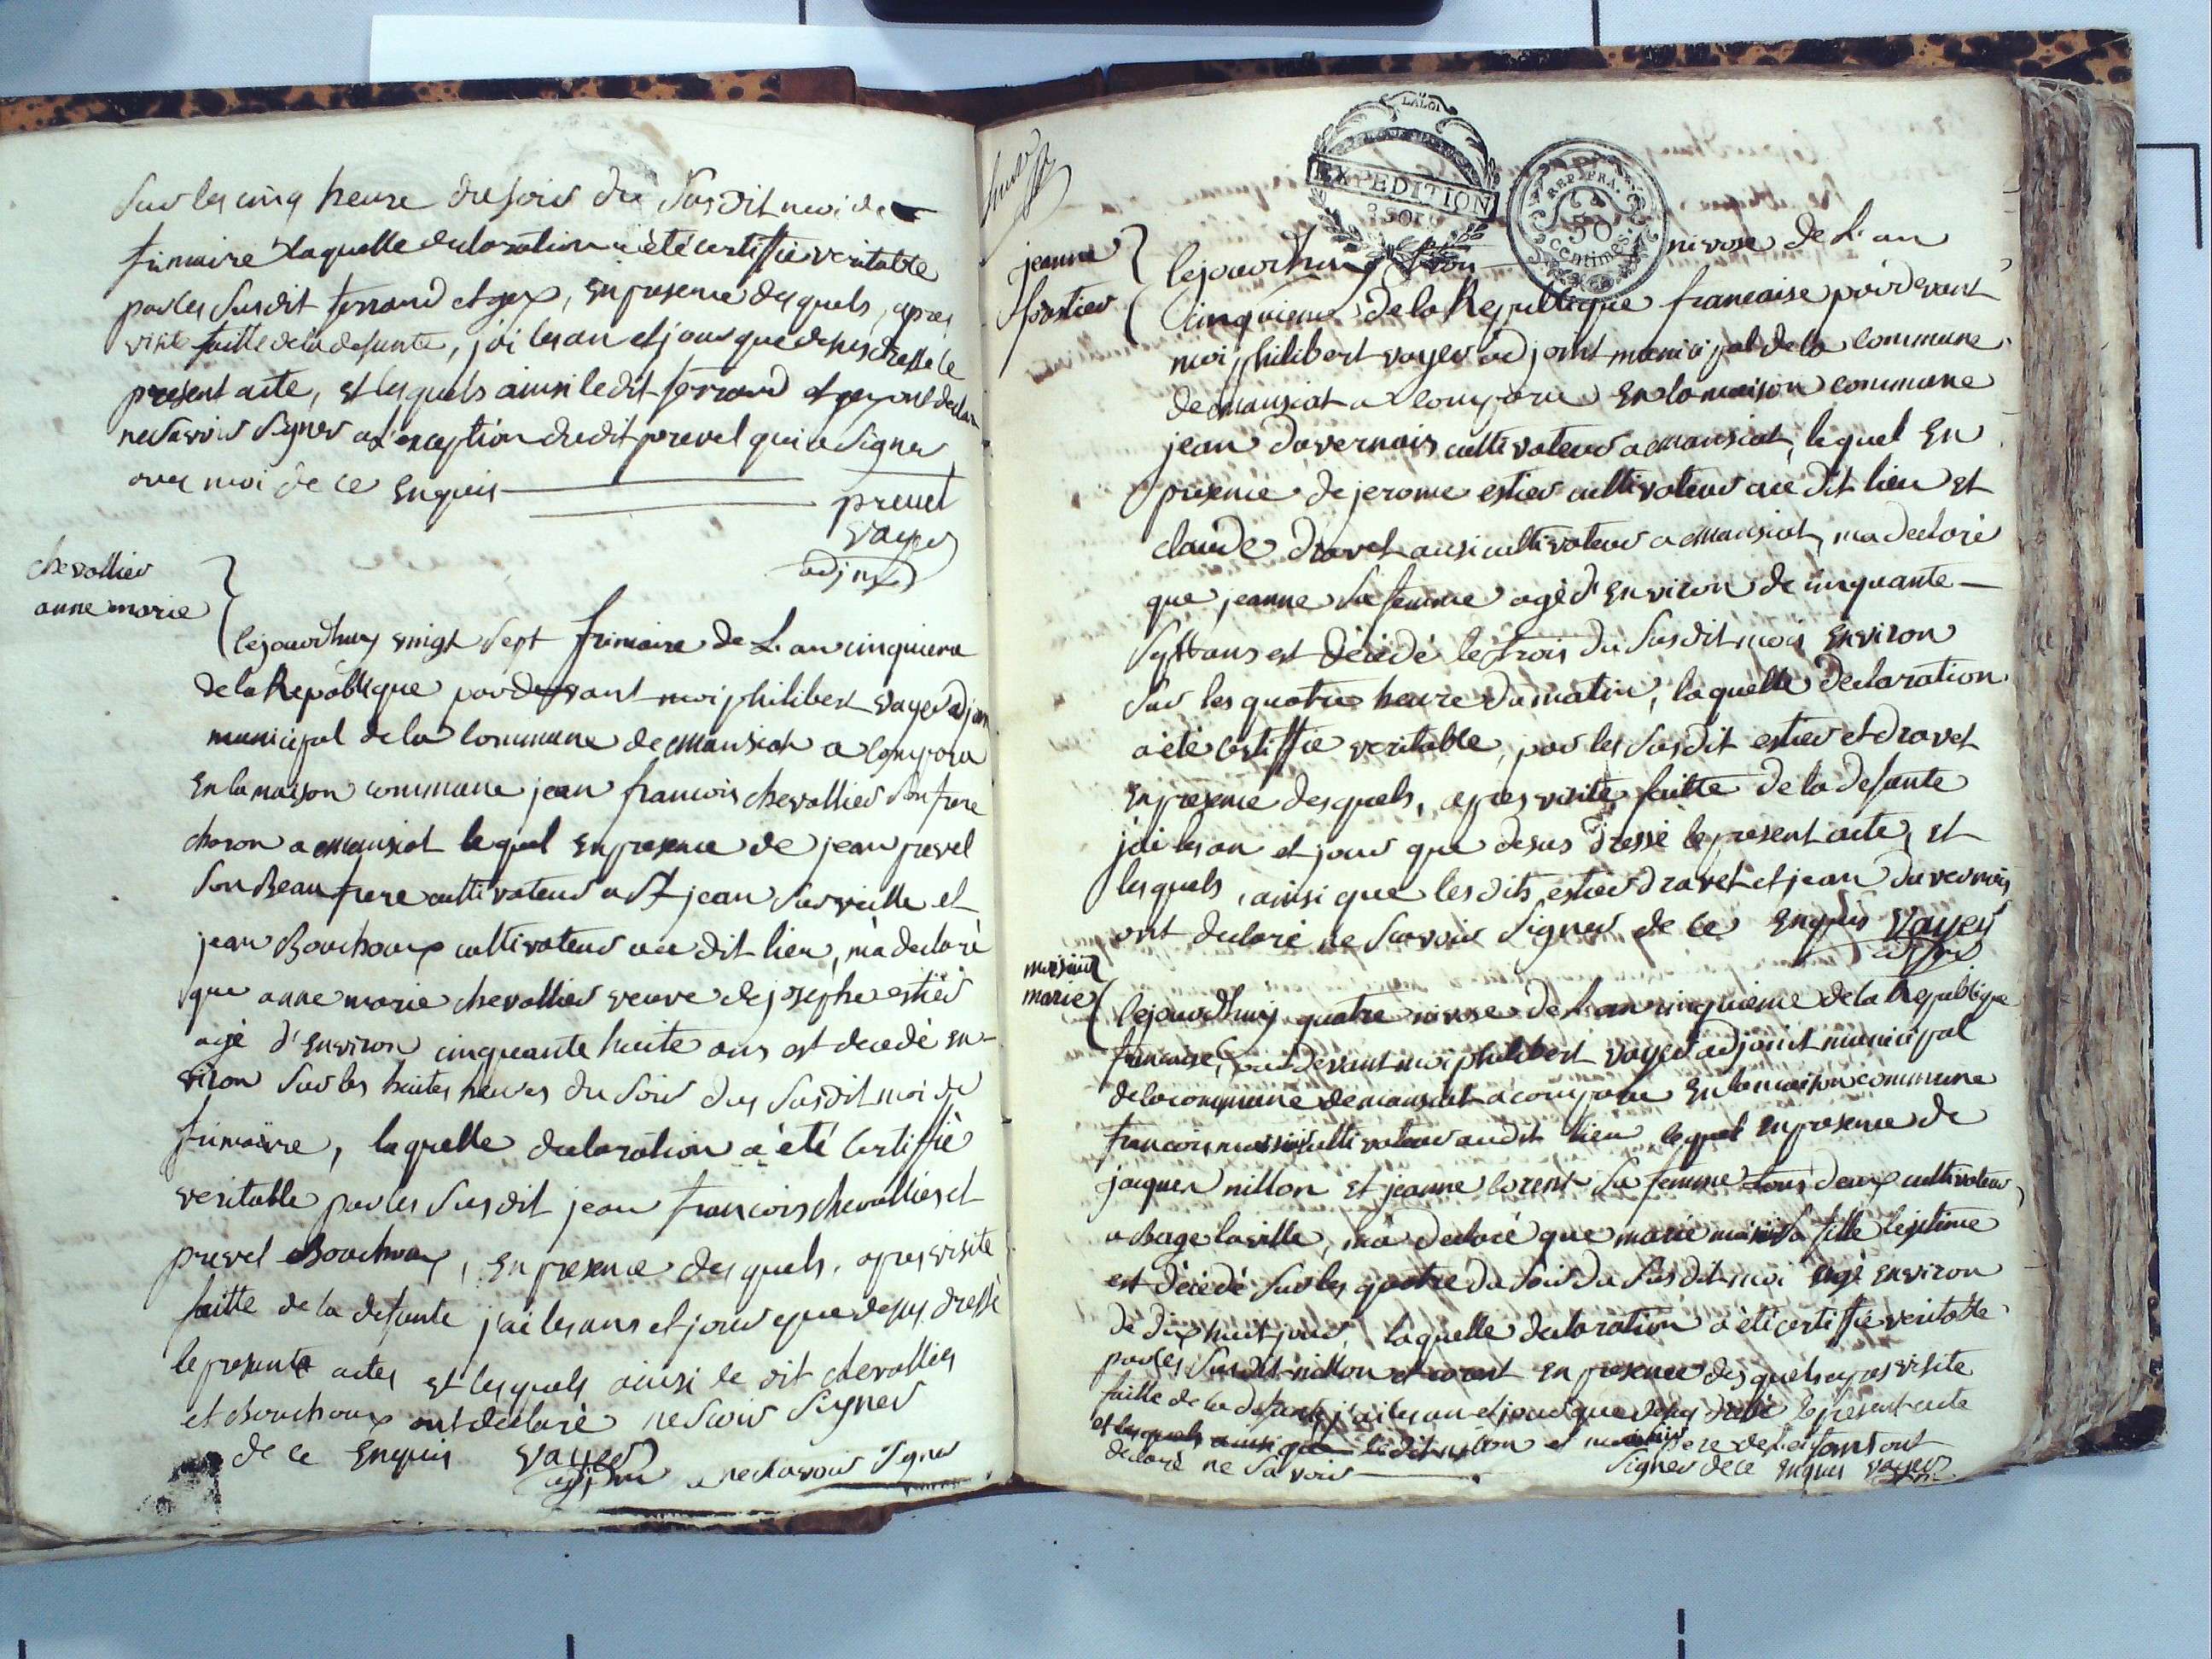 Sur les cinq heure du soir du Susdit moi de
frimaire laquelle declaration a été certiffié veritable
par les Susdit ferrand et gex, En presence desquels, apres
visite faitte de la defunte, j'ai les an et jour que desus dressé le
present acte, et lesquels ainsi le dit ferrand et gex ont declaré
ne Savoir Signer a l'exception du dit prevel qui a Signer
avec moi de ce Enquis
prevel
Vayer
adjoint
chevallier
anne marie
lejourdhuy vingt Sept frimaire de L'an cinquieme
de la Republique pardevant moi philibert vayer adjoin
municipal de la Commune de Mansiat a Comparu
En la maison commune jean francois chevallier Son frere
charon a Mansiat lequel En presence de jean prevel
Son Beau frere cultivateur a St jean Sur veille et
jean Bouchoux cultivateur au dit lieu, m'a declaré
que anne marie chevallier veuve de josephe estier
agé d'Environ cinquante huite ans est decedé en-
viron Sur les huites heures du Soir du Susdit moi de
frimaire, laquelle declaration a été Certiffié
veritable par les Susdit jean francois chevallier et
prevel Bouchoux, En presence desquels, apres visite
faitte de la defunte j'ai les ans et jour que desus dressé
le presente actes et lesquels ainsi le dit chevallier
et Bouchoux ont declaré ne Savoir Signer
de ce Enquis Vayer
adjoint ne Savoir Signer
LA LOI
EXPEDITION
REP. FRA.
50
centimes
jeanne
lejourdhuy trois nivose de L'an
Cinquieme de la Republique francaise pardevant
moi philibert vayer adjoint municipal de la Commune
de Mansiat a Comparu En la maison Commune
jean duvernois cultivateur a Mansiat, lequel En
presence de jerome estier cultivateur au dit lieu et
claude dravet ausi cultivateur a Mansiat, m'a declaré
que jeanne Sa femme agé d'Environ de cinquante
Sept ans est décedé le trois du Susdit mois Environ
Sur les quatre heure du matin, laquelle declaration
a été Certiffié veritable, par les Susdit estier et dravet
En presence desquels, apres visite faitte de la defunte
j'ai les an et jour que desus dressé le present acte, et
lesquels, ainsi que les dits estier dravet et jean duvernois
ont declaré ne Scavoir Signer de ce Enquis Vayer
adjoint
marie
lejourdhuy quatre nivose de L'an cinquieme de la Republique
francaise, par devant moi philibert vayer adjoint municipal
de la commune de mansiat a comparu En la maison commune
francois cultivateur audit lieu lequel En presence de
jacques nillon et jeanne corent Sa femme tous deux cultivateur
a Bage la ville, m'a declaré que marie Sa fille legitime
est décedé Sur les quatre du Soir du Susdit moi agé Environ
de dix huit jour, laquelle declaration a été certiffié veritable
par les Susdit nillon et corent En presence desquels apres visite
faitte de la defunte j'ai les an et jour que desus dressé le present acte
et lesquels ainsi que le dit nillon et pere de l'enfant ont
declaré ne Savoir Signer de ce Enquis Vayer